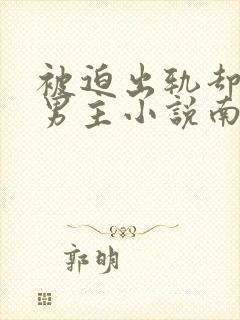 被迫出轨却
男主小説南
郭明